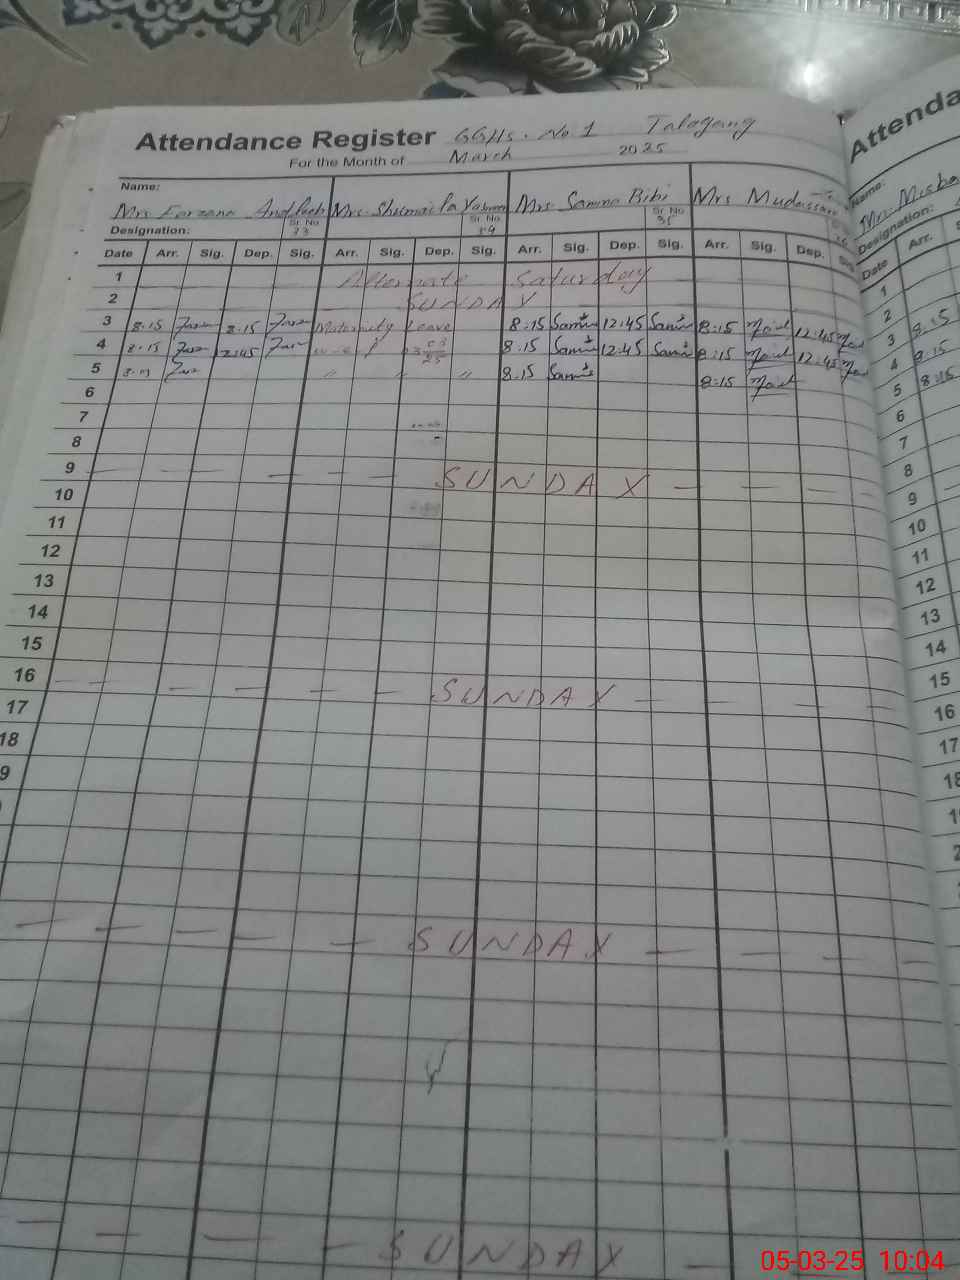 Attendance Register GGHS. No 1 Talagang
For the Month of March 2025
Name:
Mrs Farzana Andleeb Mrs. Shumaila Yasmeen Mrs. Samina Bibi Mrs Mudassara
Designation: Sr. No Sr. No Sr. No 35
Date Arr. Sig. Dep. Sig. Arr. Sig. Dep. Sig. Arr. Sig. Dep. Sig. Arr. Sig. Dep. Sig.
1 Alternate Saturday
2 SUNDAY
3 8.15 8.15 Maternity Leave 8.15 12:45 8:15 12:45
4 8.15 12:45 8.15 12:45 8:15 12:45
5 " " " 8.15 8:15
6
7
8
9 SUNDAY
10
11
12
13
14
15
16 SUNDAY
17
18
9
SUNDAY
SUNDAY
Attenda
Name:
Designation:
Date Arr.
1
2
3 8.15
4 8.15
5 8:15
6
7
8
9
10
11
12
13
14
15
16
17
05-03-25 10:04